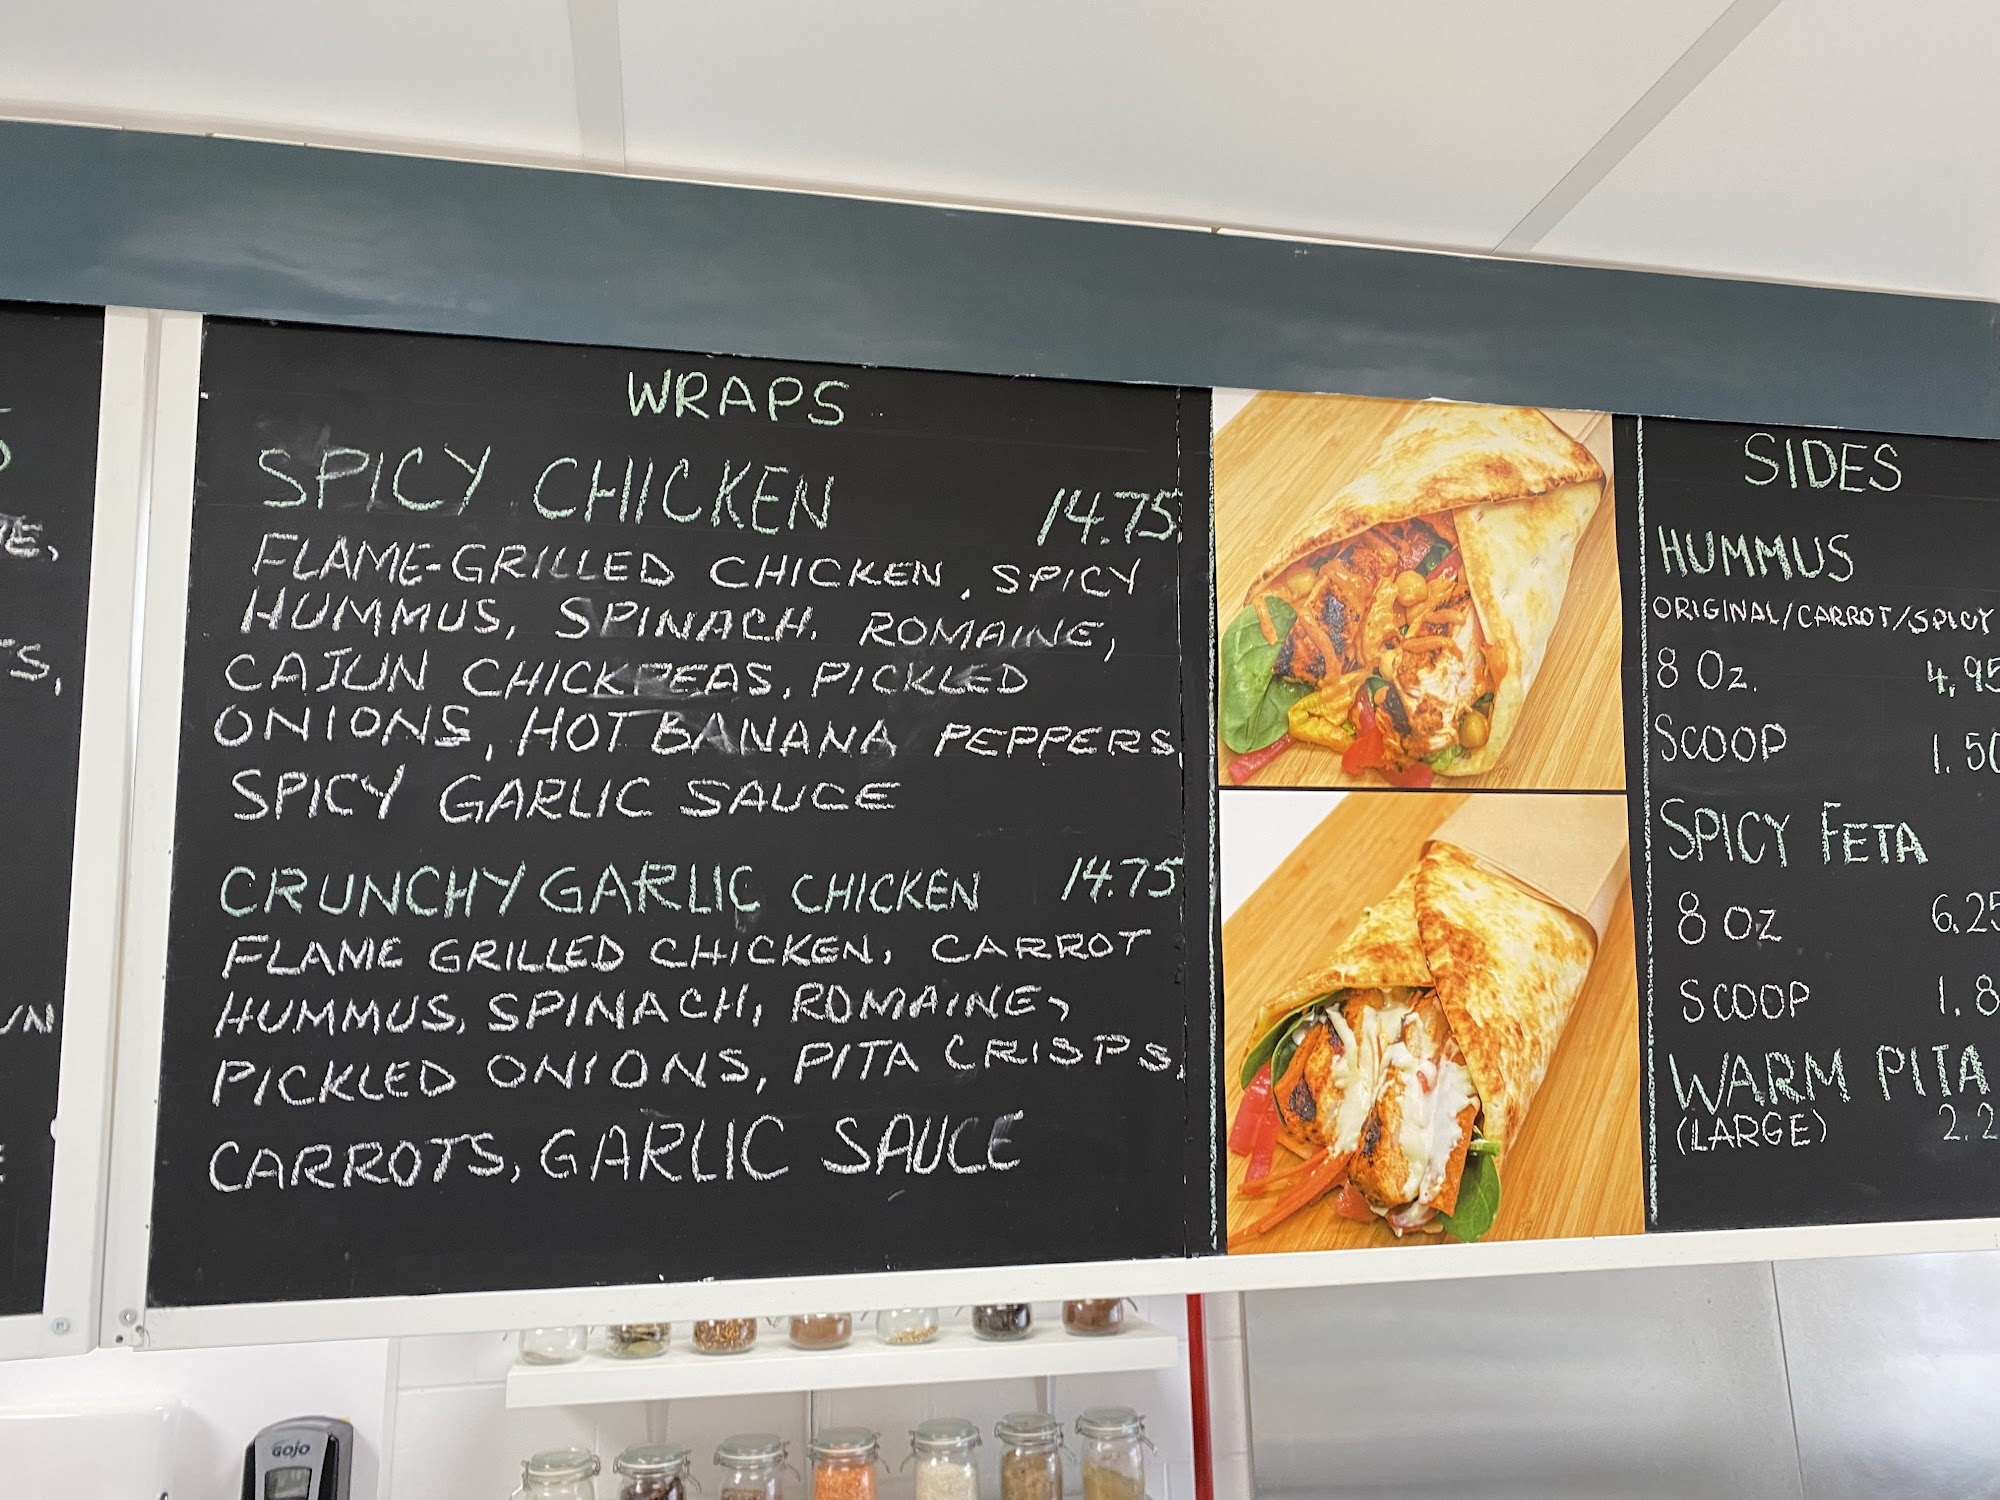 WRAPS
SPICY CHICKEN 14.75
FLAME-GRILLED CHICKEN, SPICY
HUMMUS, SPINACH. ROMAINE,
CAJUN CHICKPEAS, PICKLED
ONIONS, HOT BANANA PEPPERS
SPICY GARLIC SAUCE
CRUNCHY GARLIC CHICKEN 14.75
FLAME GRILLED CHICKEN, CARROT
HUMMUS, SPINACH, ROMAINE,
PICKLED ONIONS, PITA CRISPS,
CARROTS, GARLIC SAUCE
SIDES
HUMMUS
ORIGINAL/CARROT/SPICY
8 OZ. 4.95
SCOOP 1.50
SPICY FETA
8 OZ 6.25
SCOOP 1.8
WARM PITA
(LARGE) 2.2
GOJO